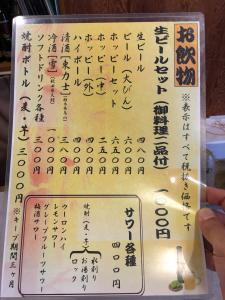 お飲物
※表示はすべて税抜き価格です
生ビールセット(御料理二品付) 一〇〇〇円
生ビール 四八〇円
ビール(大びん) 六五〇円
ホッピーセット 五〇〇円
ホッピー(中) 二五〇円
ホッピー(外)
ハイボール 四〇〇円
清酒[東力士]
冷酒[雪]
ソフトドリンク各種
焼酎ボトル(麦・芋) 三〇〇〇円 ※キープ期間三ヶ月
サワー各種 四〇〇円
焼酎(麦・芋) 水割り
お湯割り
ロック
ウーロンハイ
レモンサワー
グレープフルーツサワー
梅酒サワー